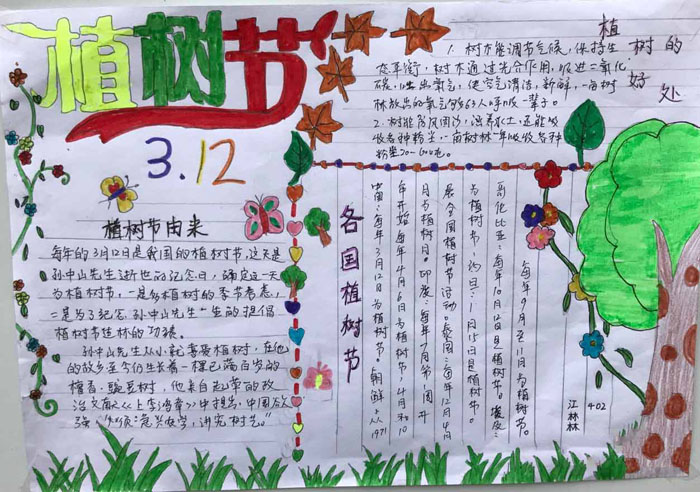 植树节
3.12
植树的好处
1. 树木能调节气候,保持生
态平衡,树木通过光合作用,吸进二氧化
碳,吐出氧气,使空气清洁,新鲜,一亩树
林放出的氧气够63人呼吸一辈子。
2. 树能防风固沙,涵养水土,还能吸
收各种粉尘,一亩树林一年吸收各种
粉尘20-60吨。
植树节由来
每年的3月12日是我国的植树节,这天是
孙中山先生逝世的纪念日,确定这一天
为植树节,一是为植树的季节考虑,
二是为了纪念孙中山先生一生的提倡
植树节造林的功绩。
孙中山先生从小就喜爱植树,在他
的故乡至今仍生长着一棵已满百岁的
檀香、豌豆树,他来自起草的政
治文献《上李鸿章》中提出,中国欲
强"须急兴农学,讲究树艺。"
各国植树节
中国:每年3月12日为植树节。朝鲜:从1971
年开始每年4月6日为植树节,4月和10
月为植树月。印度:每年7月第1周开
展全国植树节活动。泰国:每年12月4月
为植树节。约旦:1月15日是植树节。
哥伦比亚:每年10月12日是植树节。埃及:
每年9月至11月为植树节。
江林林
402